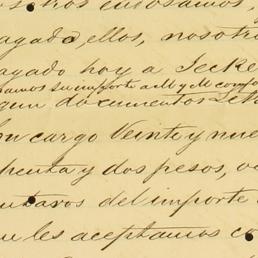 tros endosamos,
agado, ellos, nosotro
agado hoy a Jecke
amos su importe a M y M comp
gun documentos Let
on cargo Veinte y nue
henta y dos pesos, oc
ntavos del importe
ue les aceptamos co